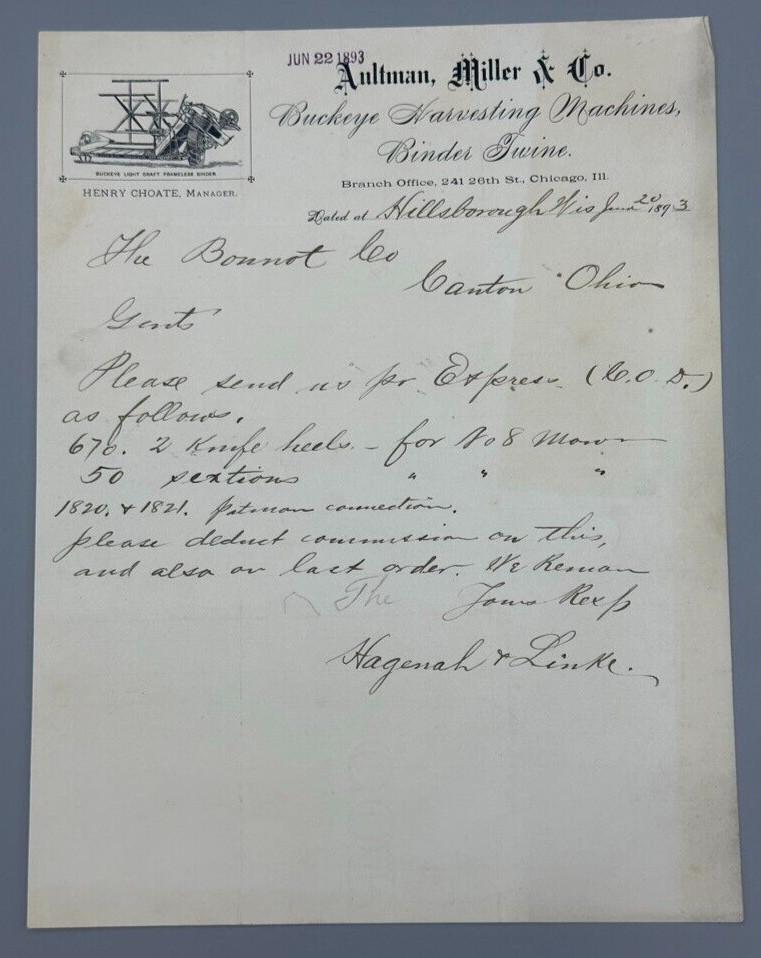 JUN 22 1893
Aultman, Miller & Co.
Buckeye Harvesting Machines,
Binder Twine.
BUCKEYE LIGHT DRAFT FRAMELESS BINDER
HENRY CHOATE, MANAGER.
Branch Office, 241 26th St., Chicago, Ill.
Dated at Hillsborough Wis June 20 1893
The Bonnot Co
Canton Ohio
Gents
Please send us pr Express (C.O.D.)
as follows.
670. 2 Knife heels - for No 8 Mower
50 sextions " " "
1820. & 1821. pitman connection.
please deduct commission on this,
and also on last order. We Remain
The Yours Resp
Hagenah & Linke.